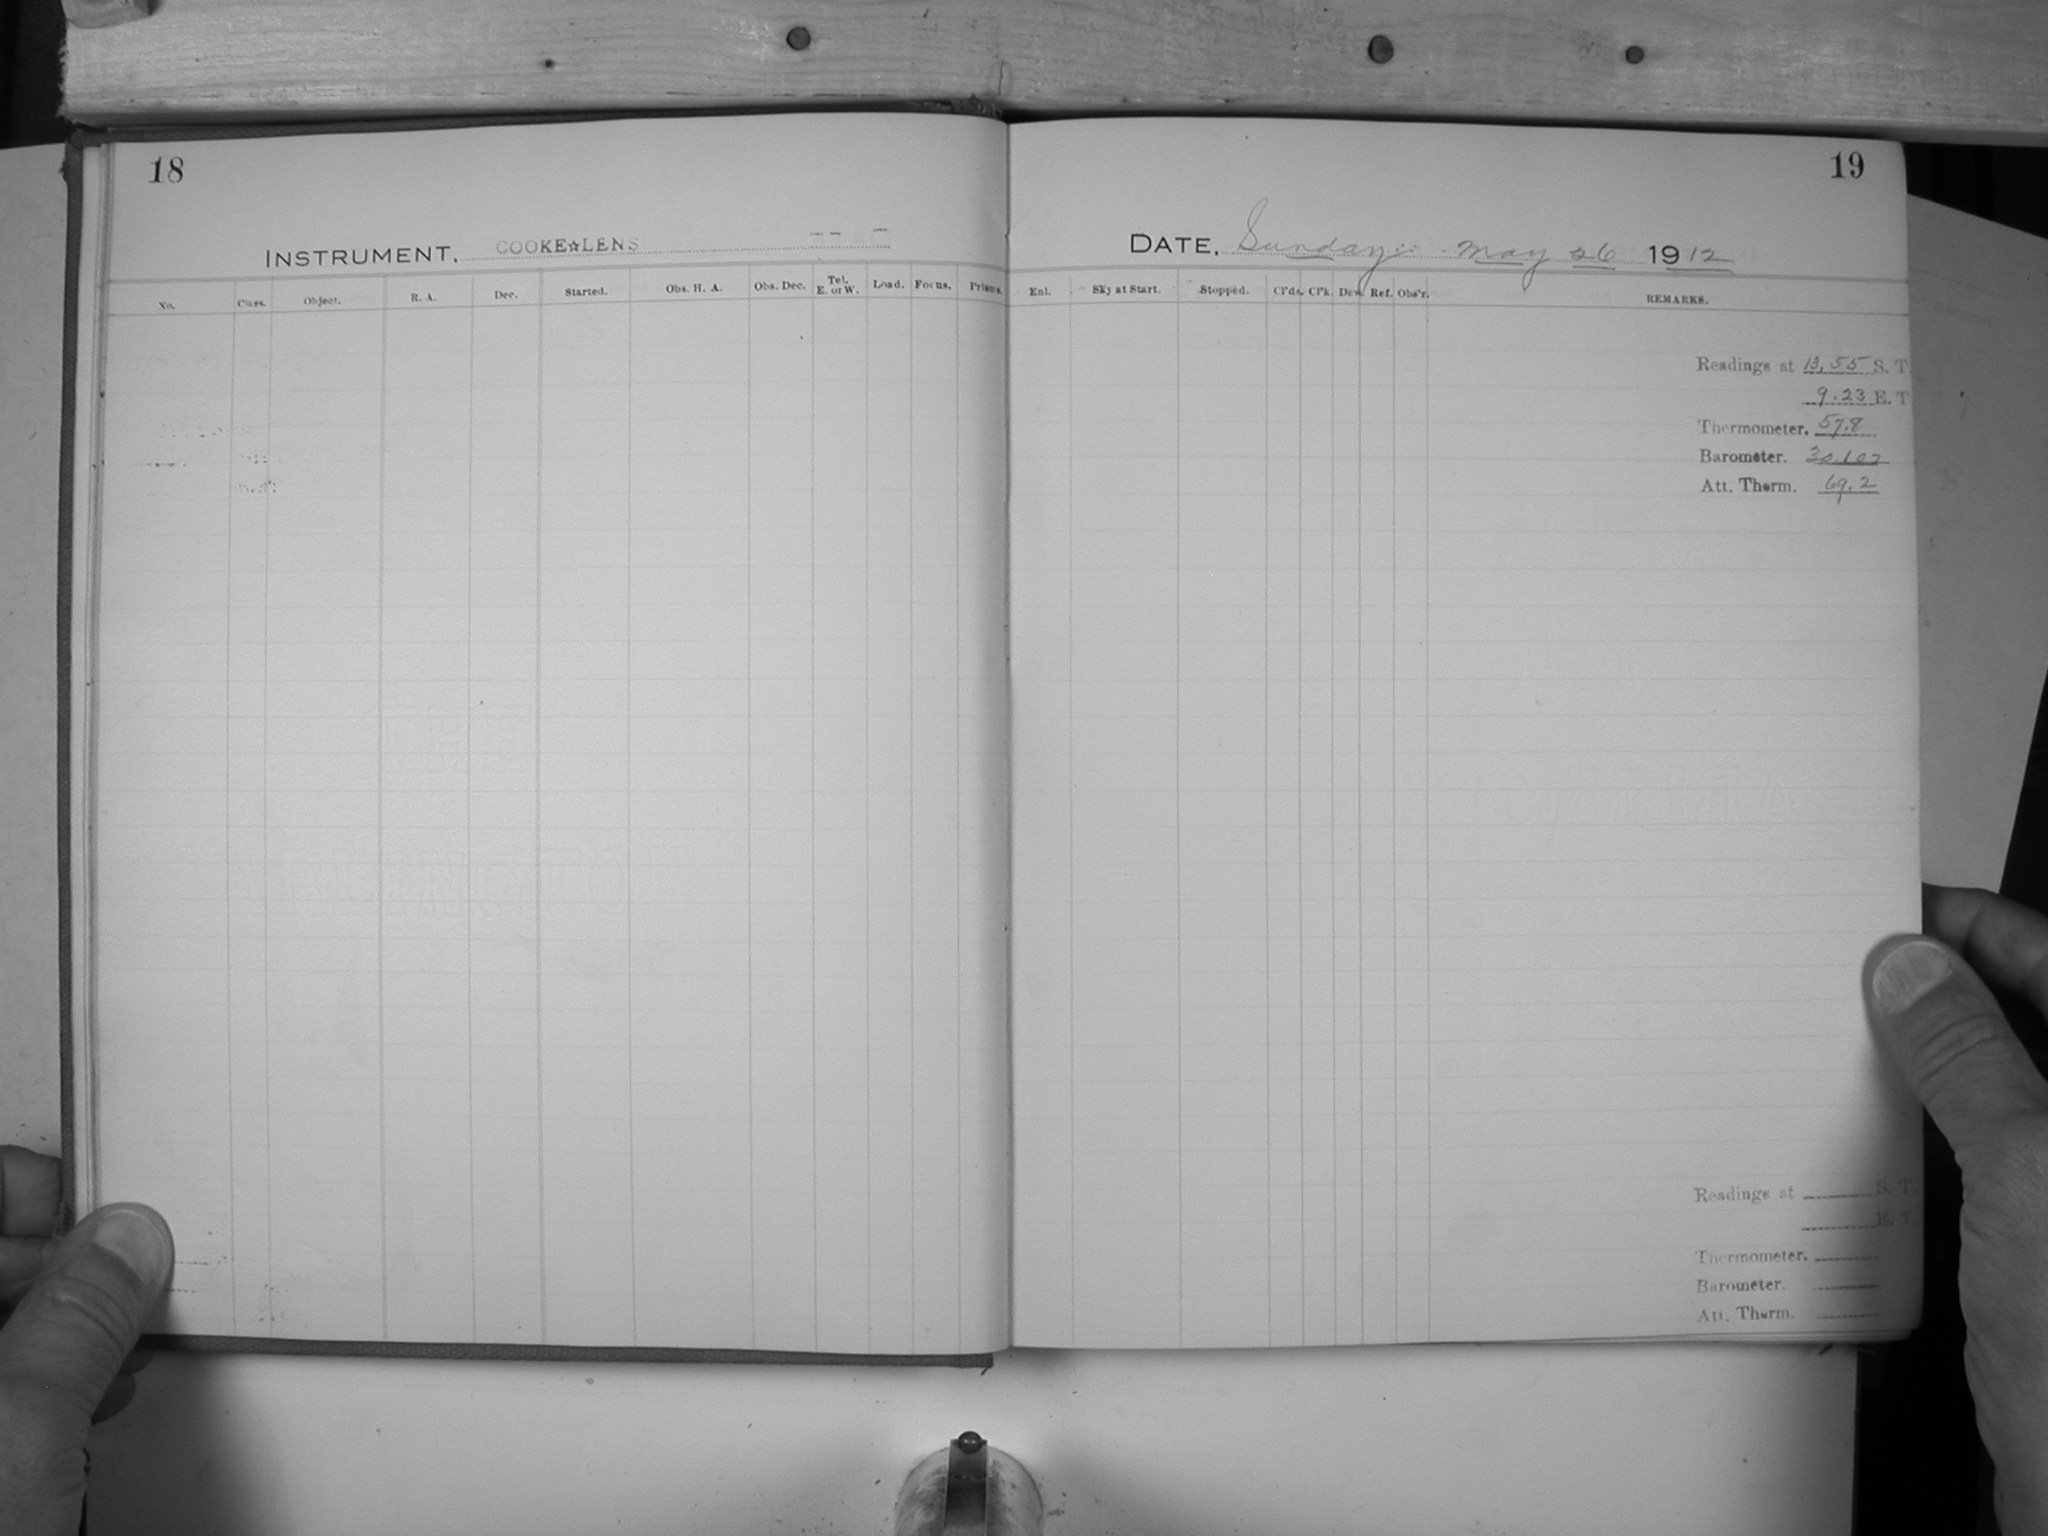 18
INSTRUMENT, COOKE☆LENS
No. Class. Object. R. A. Dec. Started. Obs. H. A. Obs. Dec. Tel. E. or W. Load. Focus. Prisms.
19
DATE, Sunday May 26 1912
Enl. Sky at Start. Stopped. Cl'ds. Cl'k. Dew. Ref. Obs'r. REMARKS.
Readings at 13.55 S. T.
9.23 E. T.
Thermometer. 57.8
Barometer. 30.102
Att. Therm. 69.2
Readings at S. T.
E. T.
Thermometer.
Barometer.
Att. Therm.